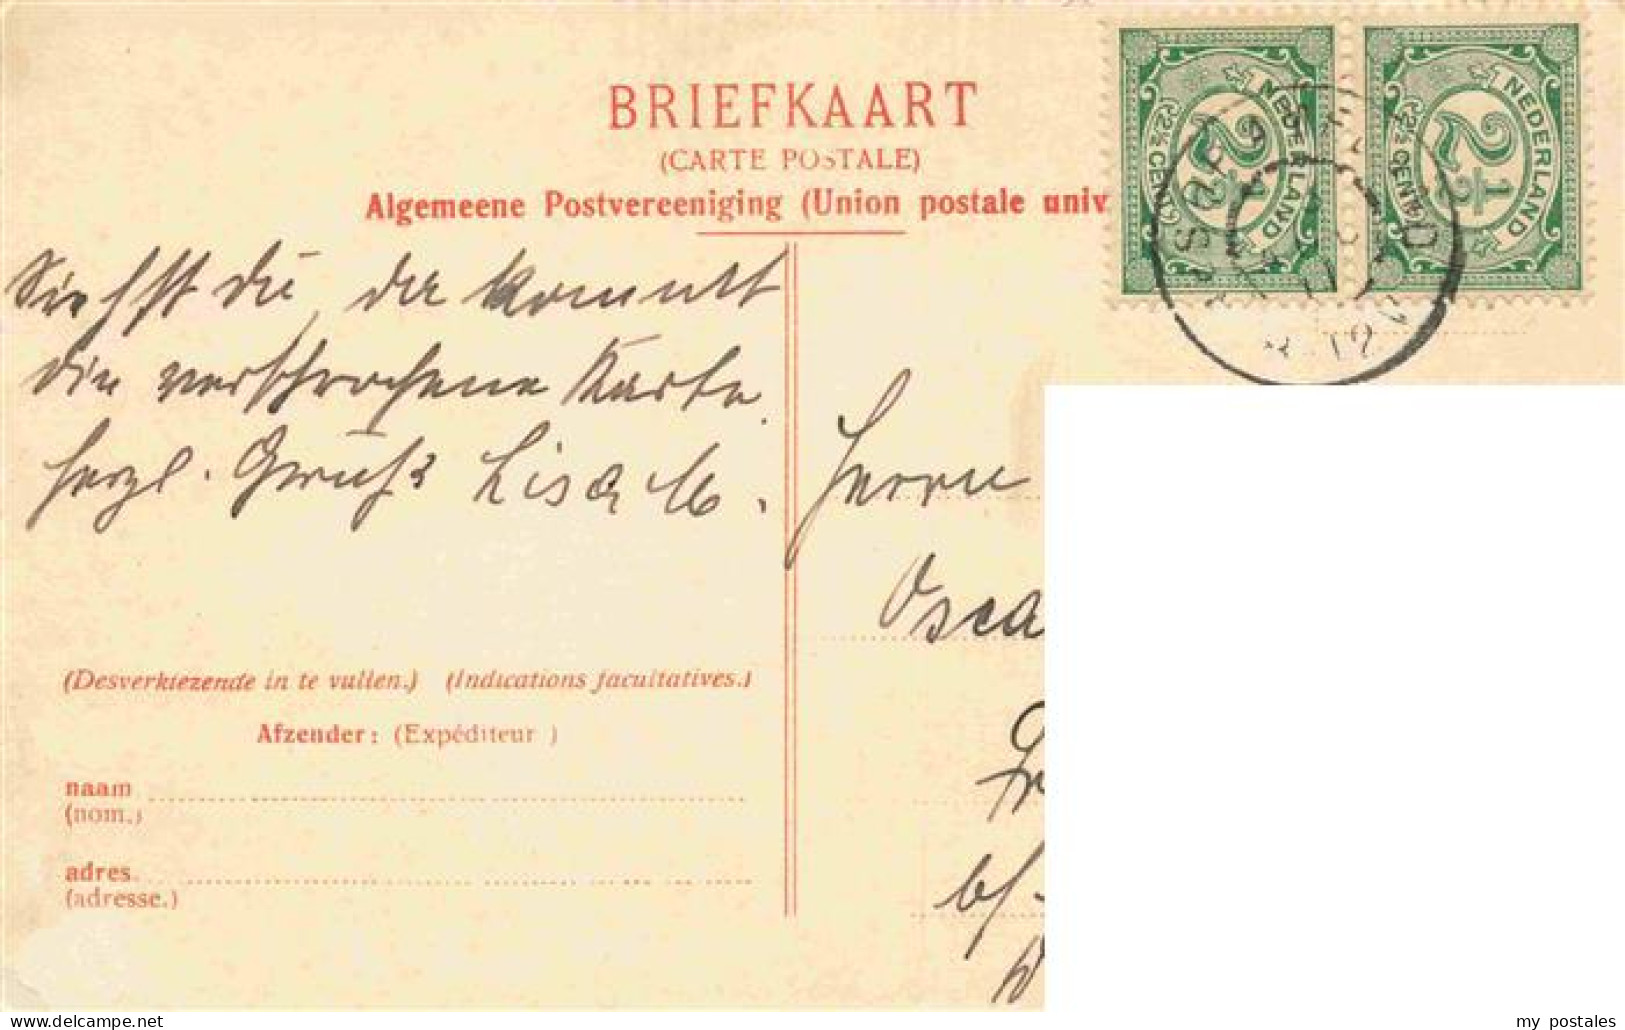 BRIEFKAART
(CARTE POSTALE)
Algemeene Postvereeniging (Union postale univ
NEDERLAND
2½
2½ CENT
NEDERLAND
2½
2½ CENT
Siehsst du, da kommt
die versprochene Karte.
herzl. Gruß Lisa M.
Herrn
Osca
(Desverkiezende in te vullen.) (Indications facultatives.)
Afzender: (Expéditeur )
naam
(nom.)
adres.
(adresse.)
my postales